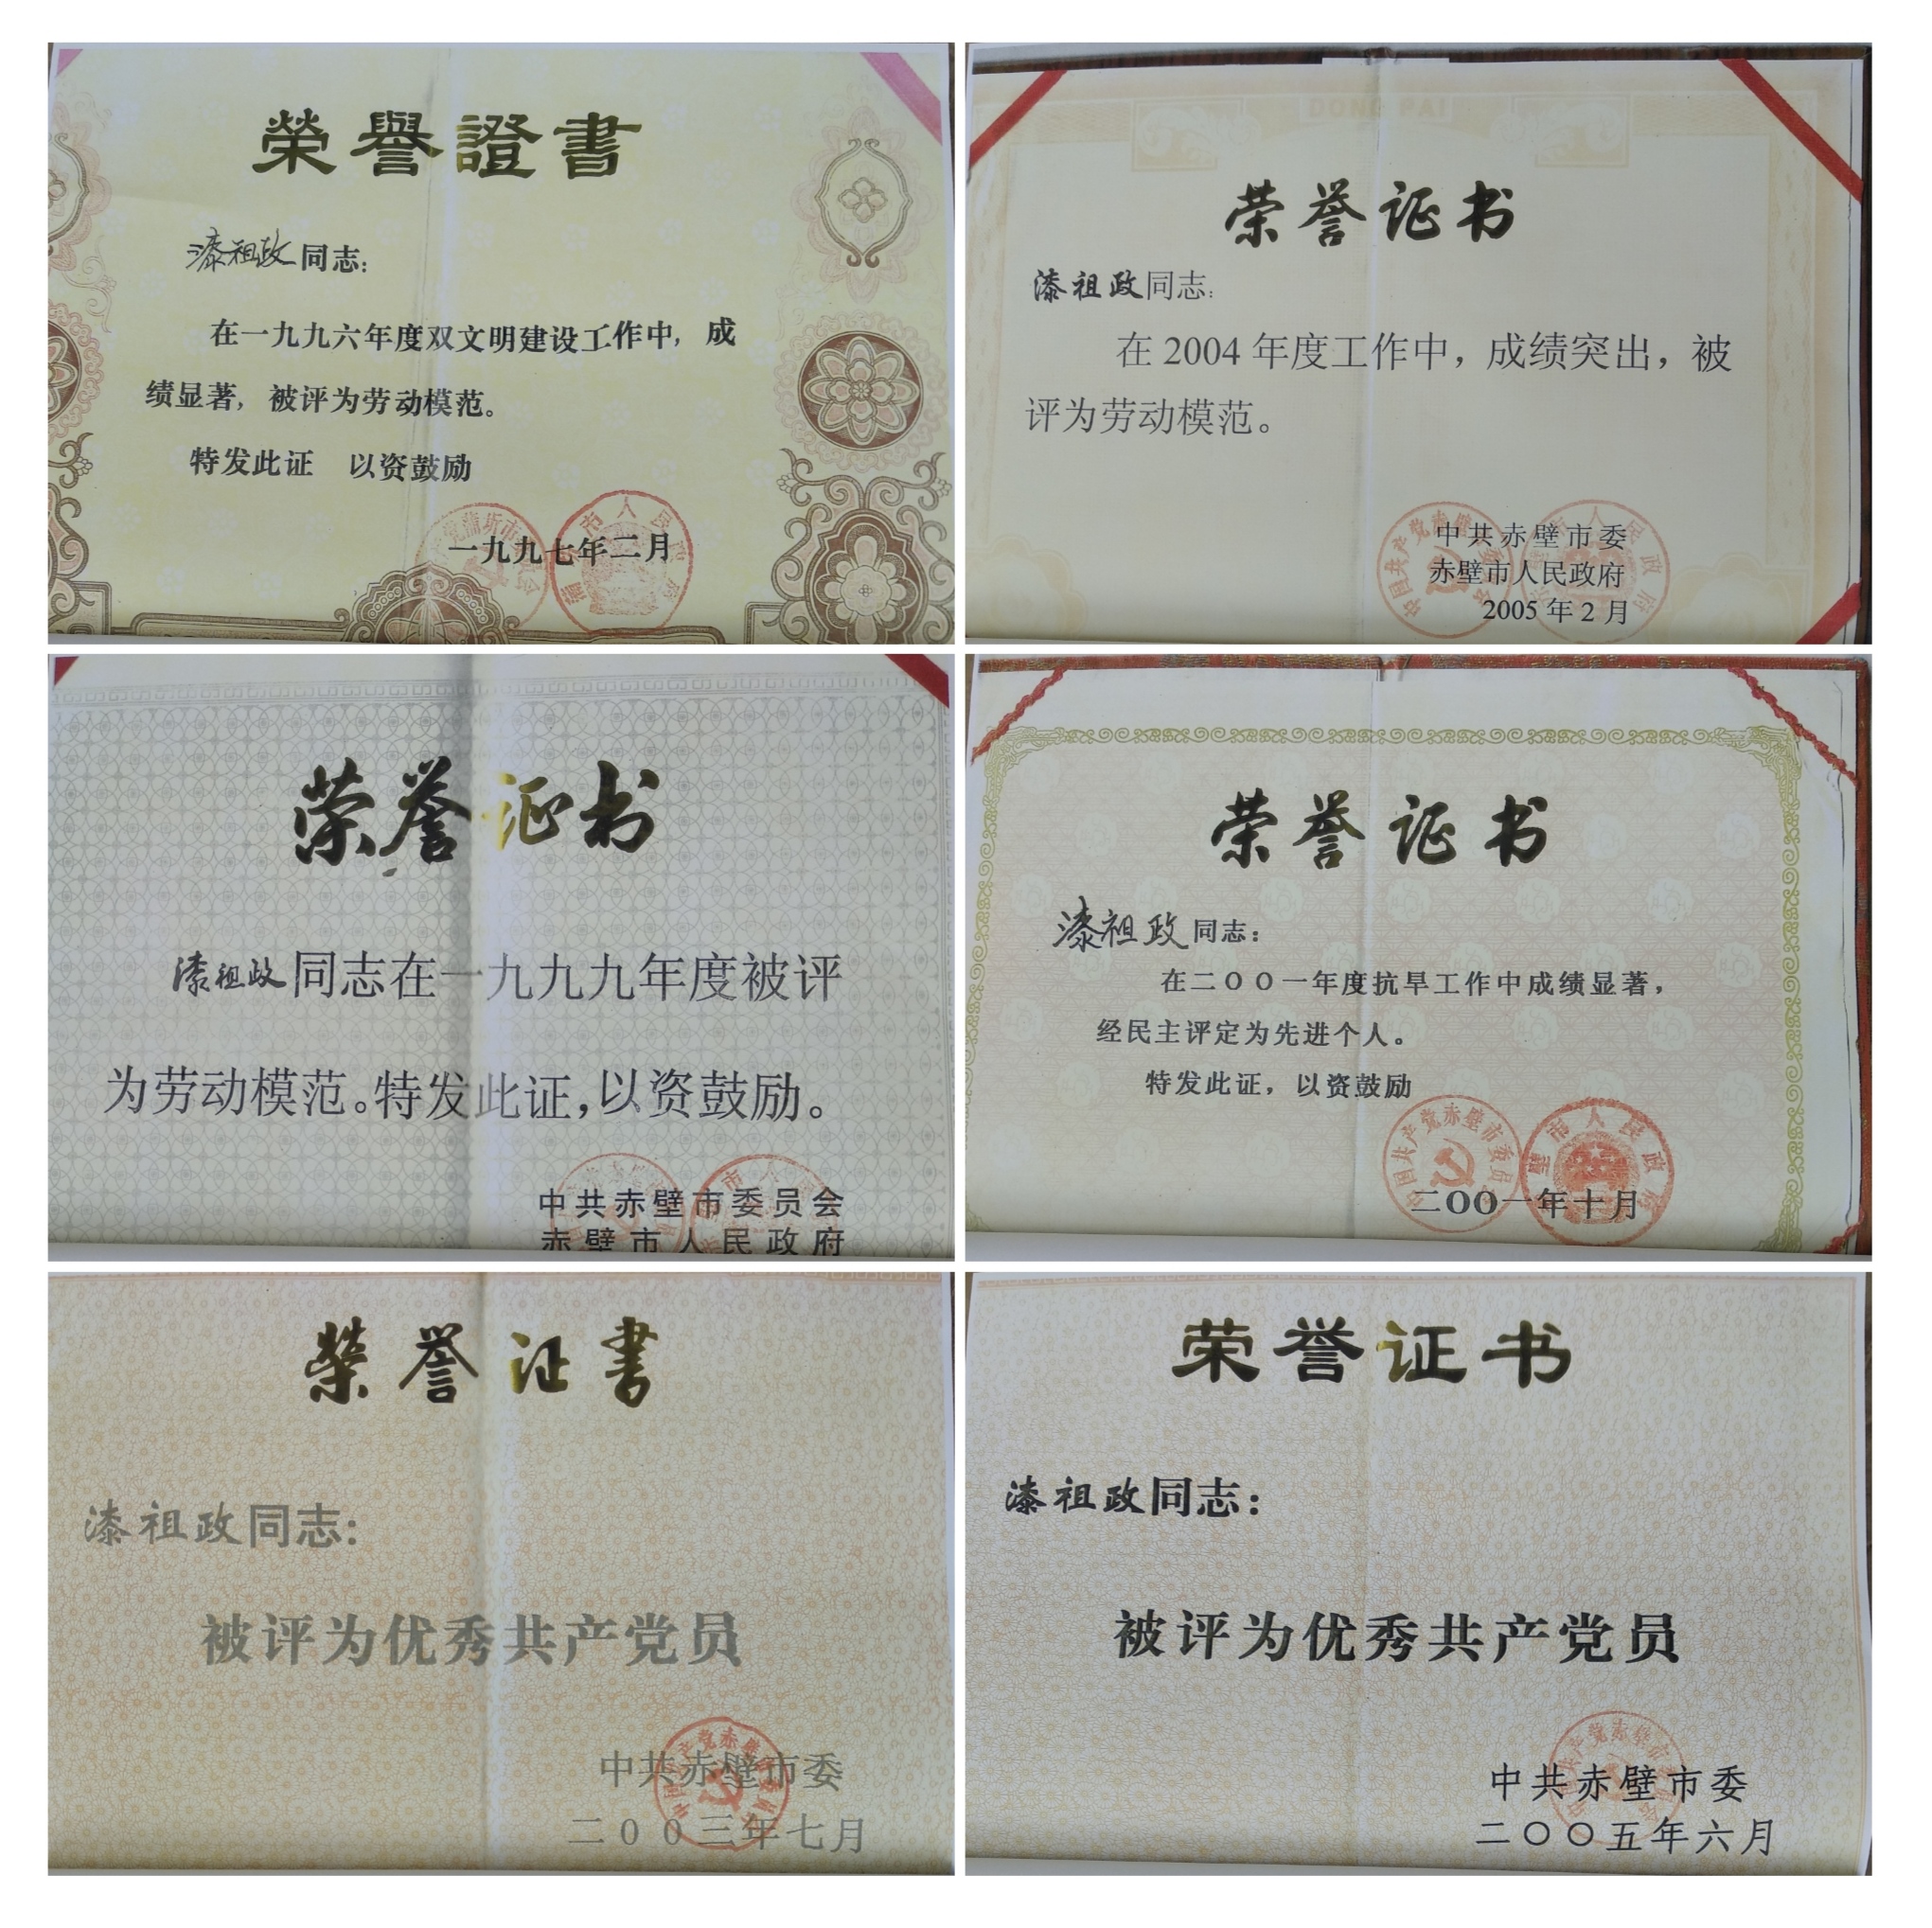 榮譽證書
漆祖政同志：
在一九九六年度双文明建设工作中，成
绩显著，被评为劳动模范。
特发此证　以资鼓励
一九九七年二月
DONG PAI
荣誉证书
漆祖政同志：
在 2004 年度工作中，成绩突出，被
评为劳动模范。
中共赤壁市委
赤壁市人民政府
2005 年 2 月
荣誉证书
漆祖政同志在一九九九年度被评
为劳动模范。特发此证，以资鼓励。
中共赤壁市委员会
赤壁市人民政府
荣誉证书
漆祖政同志：
在二〇〇一年度抗旱工作中成绩显著，
经民主评定为先进个人。
特发此证，以资鼓励
中国共产党赤壁市委员会
二〇〇一年十月
榮誉证書
漆祖政同志：
被评为优秀共产党员
中共赤壁市委
二００三年七月
荣誉证书
漆祖政同志：
被评为优秀共产党员
中共赤壁市委
二〇〇五年六月